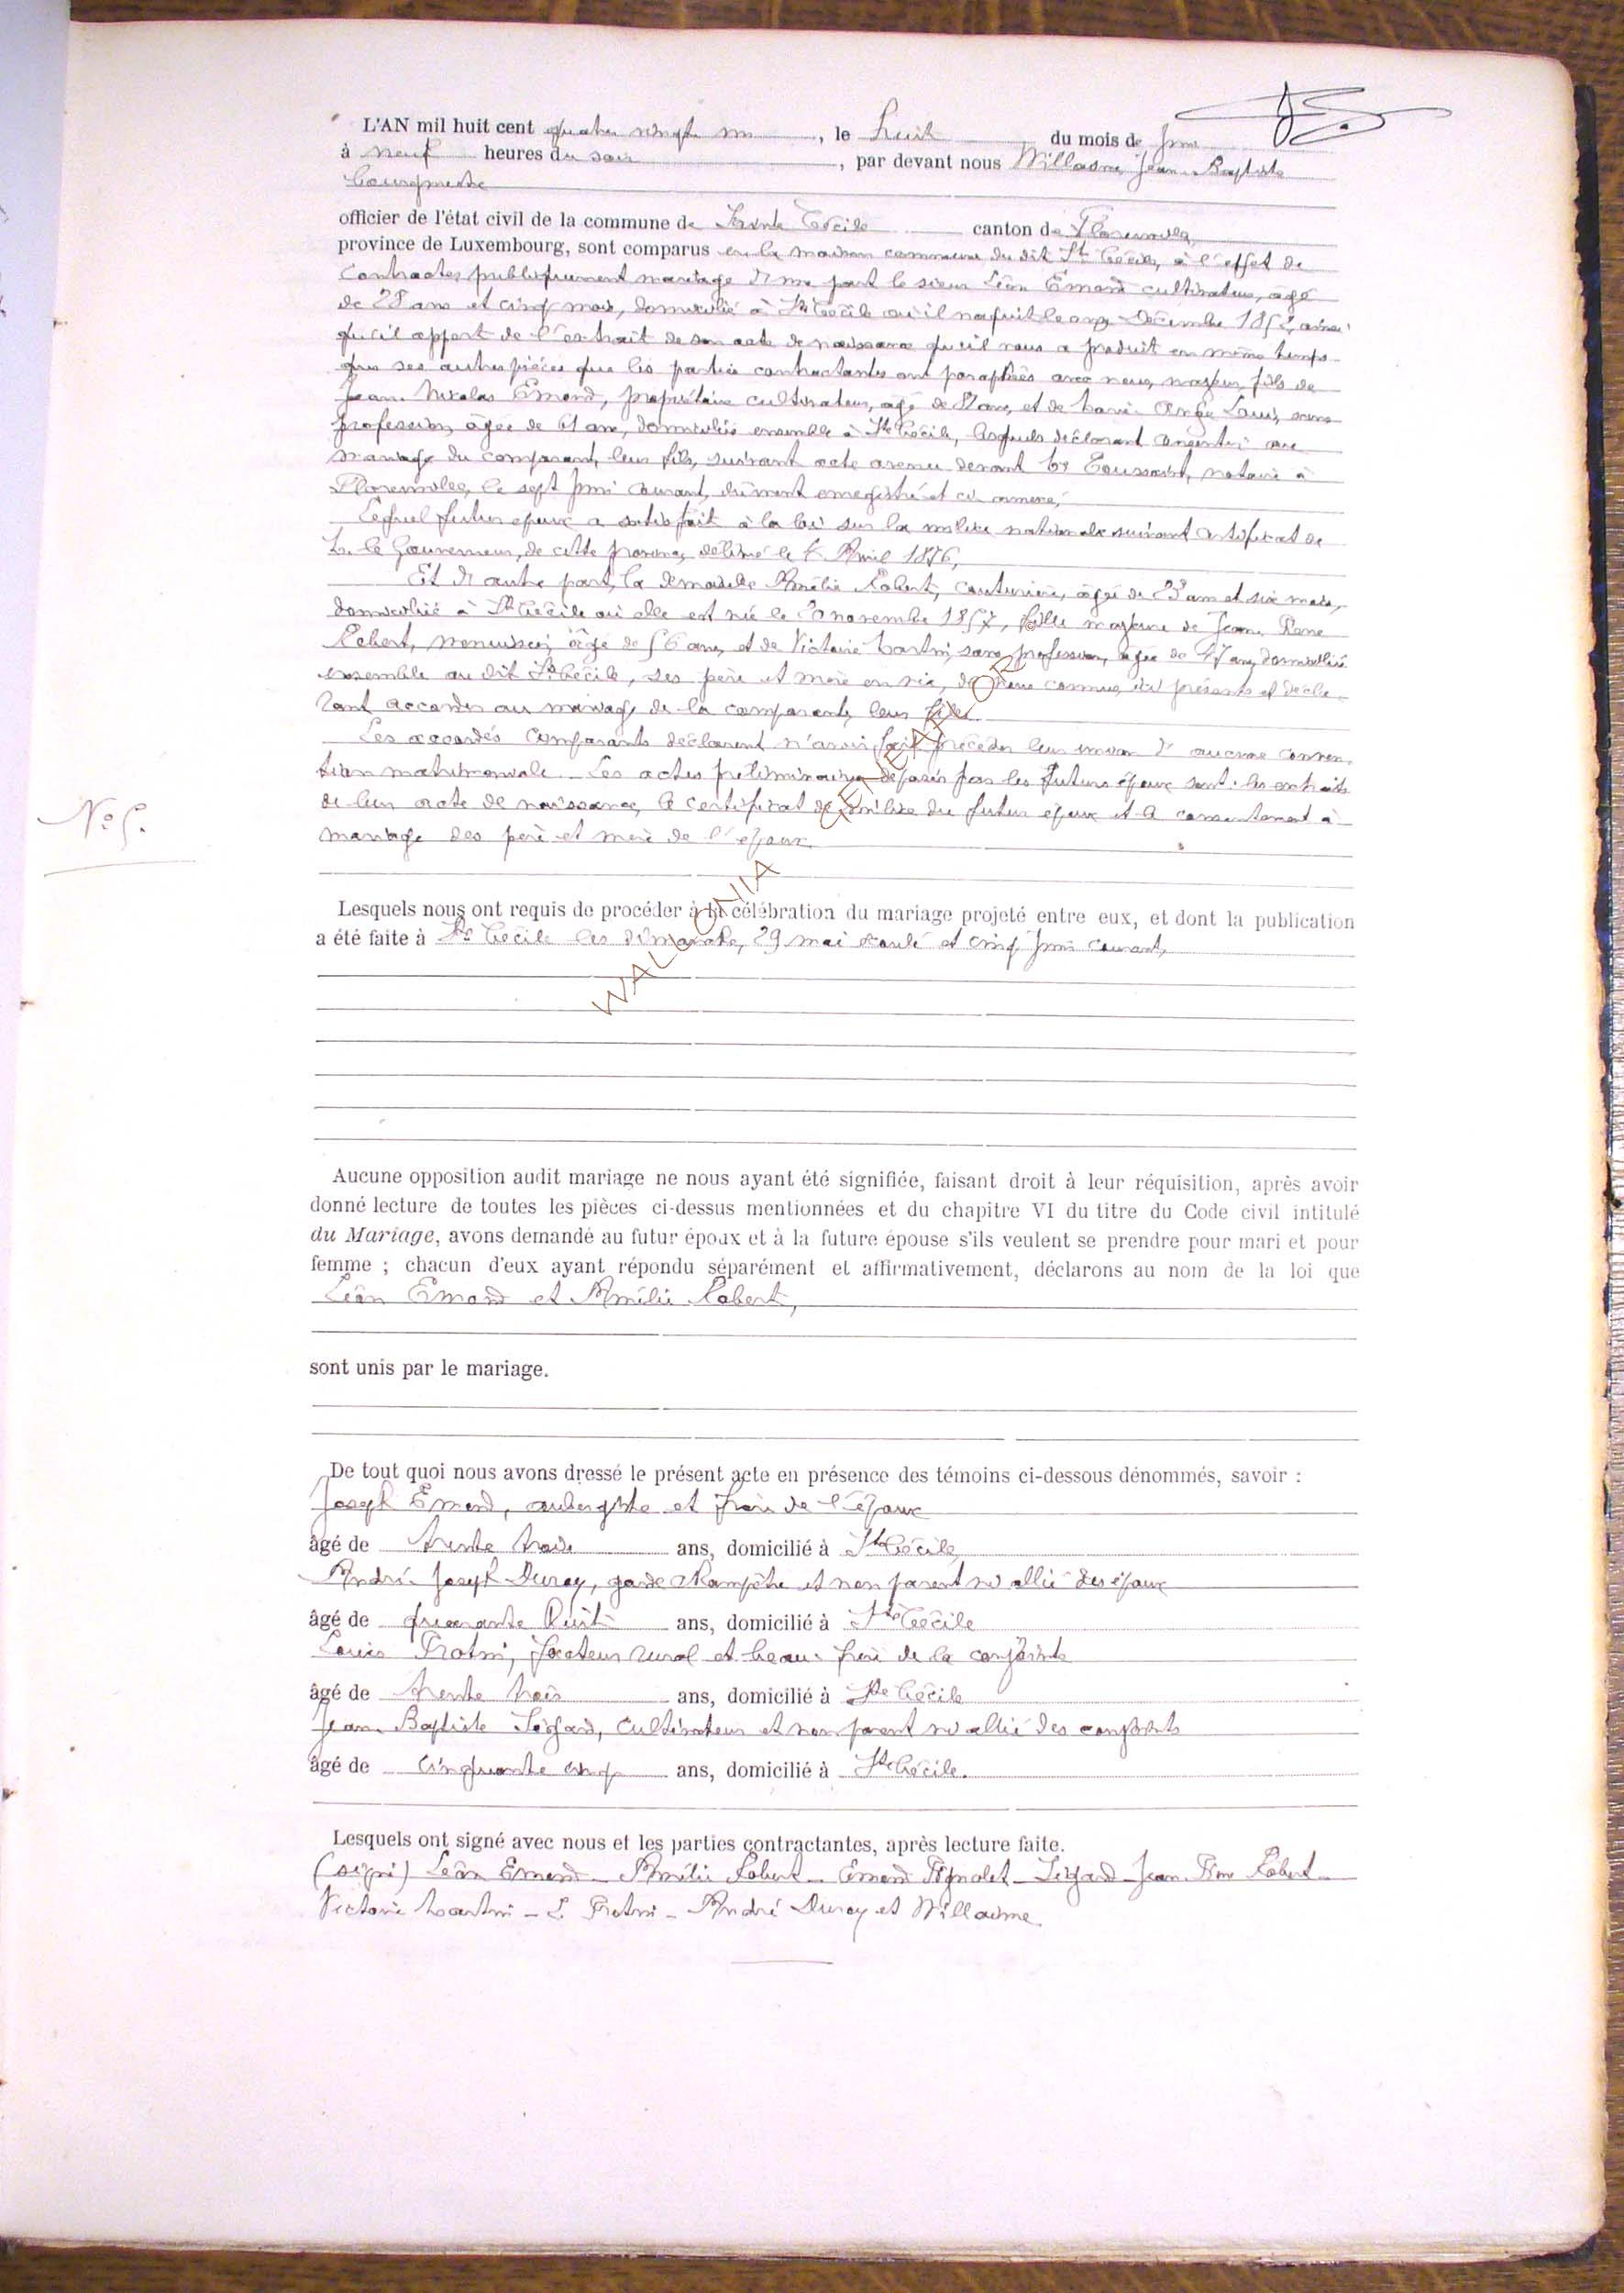 L'AN mil huit cent quatre vingt un, le huit du mois de Juin
à neuf heures du soir, par devant nous Willaime Jean-Baptiste
bourgmestre
officier de l'état civil de la commune de Sainte Cécile canton de Florenville,
province de Luxembourg, sont comparus en la maison commune du dit Ste Cécile, à l'effet de
contracter publiquement mariage d'une part le sieur Léon Emond cultivateur, âgé
de 28 ans et cinq mois, domicilié à Ste Cécile où il naquit le onze Décembre 1852, ainsi
qu'il appert de l'extrait de son acte de naissance qu'il nous a produit en même temps
que ses autres pièces que les parties contractantes ont paraphées avec nous, majeur, fils de
Jean Nicolas Emond, propriétaire cultivateur, âgé de ans, et de Marie Ange Louis, sans
profession, âgée de 61 ans, domiciliés ensemble à Ste Cécile, lesquels déclarant consentir au
mariage du comparant, leur fils, suivant acte avenu devant Mr Toussaint, notaire à
Florenville, le sept Juin courant, dûment enregistré et ci annexé;
Lequel futur époux a satisfait à la loi sur la milice nationale suivant certificat de
Mr le Gouverneur, de cette province, délivré le Avril 1876,
Et d'autre part, la demoiselle Amélie Robert, couturière, âgée de 23 ans et six mois,
domiciliée à Ste Cécile où elle est née le novembre 1857, fille majeure de Jean Pierre
Robert, menuisier, âgé de 56 ans, et de Victoire Martin, sans profession, âgée de ans, domiciliés
ensemble au dit Ste Cécile, ses père et mère en vie, de nous connus, ici présents et décla-
rant accorder au mariage de la comparante, leur fille.
Les accordés comparants déclarent n'avoir fait précéder leur union d'aucune conven-
tion matrimoniale. Les actes préliminaires déposés par les futurs époux sont: les extraits
de leur acte de naissance, le certificat de milice du futur époux et le consentement à
mariage des père et mère de l'époux.
N° 5.
Lesquels nous ont requis de procéder à la célébration du mariage projeté entre eux, et dont la publication
a été faite à Ste Cécile les dimanches, 29 mai écoulé et cinq Juin courant,
WALLONIA GENEALOR
Aucune opposition audit mariage ne nous ayant été signifiée, faisant droit à leur réquisition, après avoir
donné lecture de toutes les pièces ci-dessus mentionnées et du chapitre VI du titre du Code civil intitulé
du Mariage, avons demandé au futur époux et à la future épouse s'ils veulent se prendre pour mari et pour
femme ; chacun d'eux ayant répondu séparément et affirmativement, déclarons au nom de la loi que
Léon Emond et Amélie Robert,
sont unis par le mariage.
De tout quoi nous avons dressé le présent acte en présence des témoins ci-dessous dénommés, savoir :
Joseph Emond, aubergiste et frère de l'époux
âgé de trente trois ans, domicilié à Ste Cécile
André-Joseph Duroy, garde champêtre et non parent ni allié des époux
âgé de quarante huit ans, domicilié à Ste Cécile
Louis Protin, facteur rural et beau-frère de la conjointe
âgé de trente trois ans, domicilié à Ste Cécile
Jean-Baptiste cultivateur et non parent ni allié des conjoints
âgé de cinquante cinq ans, domicilié à Ste Cécile.
Lesquels ont signé avec nous et les parties contractantes, après lecture faite.
(signé) Léon Emond - Amélie Robert - Emond Pignolet - Jean Pierre Robert -
Victoire Martin - L Protin - André Duroy et Willaime